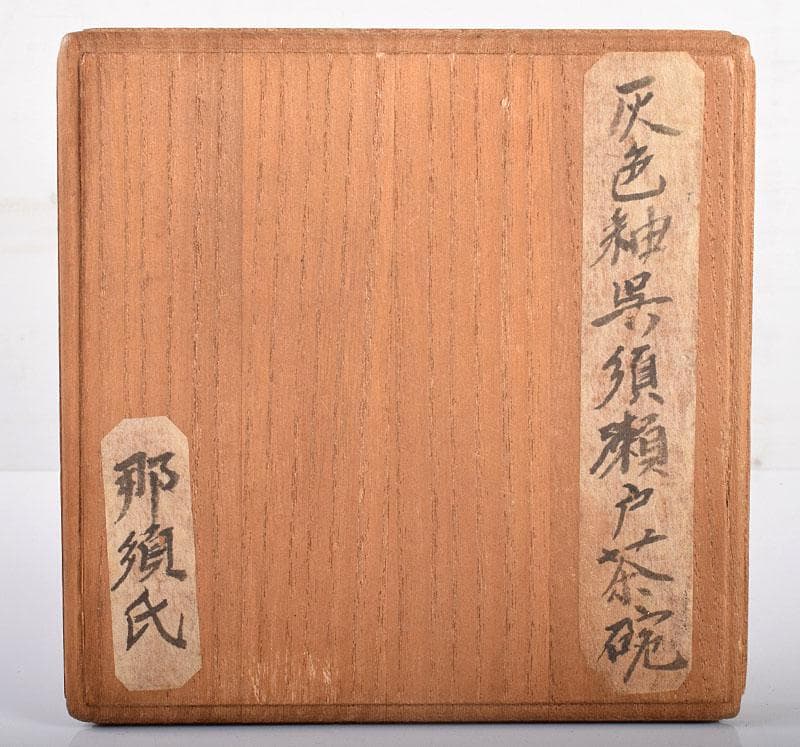 灰色釉呉須瀬戸茶碗
那須氏